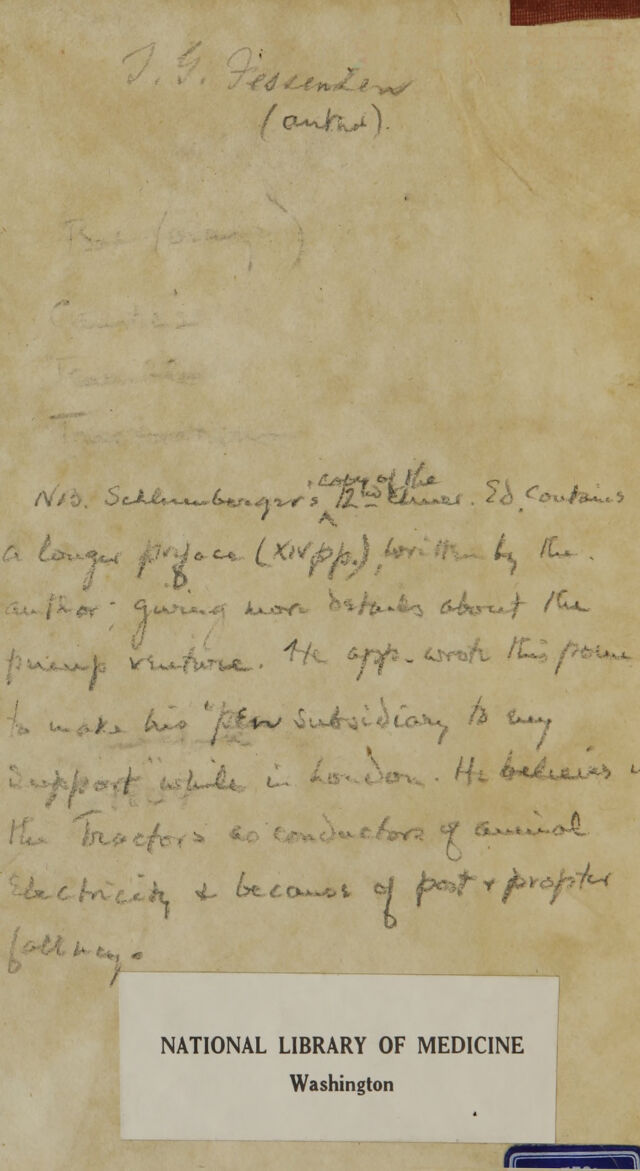 T. G. Fessenden
(author).
N.B. Schlumberger's copy of the 2nd Amer. Ed. contains
a longer preface (XIV pp.), written by the
author; giving more details about the
pump venture. He app. wrote this poem
to make his "pen subsidiary to my
support" while in London. He believes
the Tractors as conductors of animal
Electricity & because of post & propter
fallacy.
NATIONAL LIBRARY OF MEDICINE
Washington